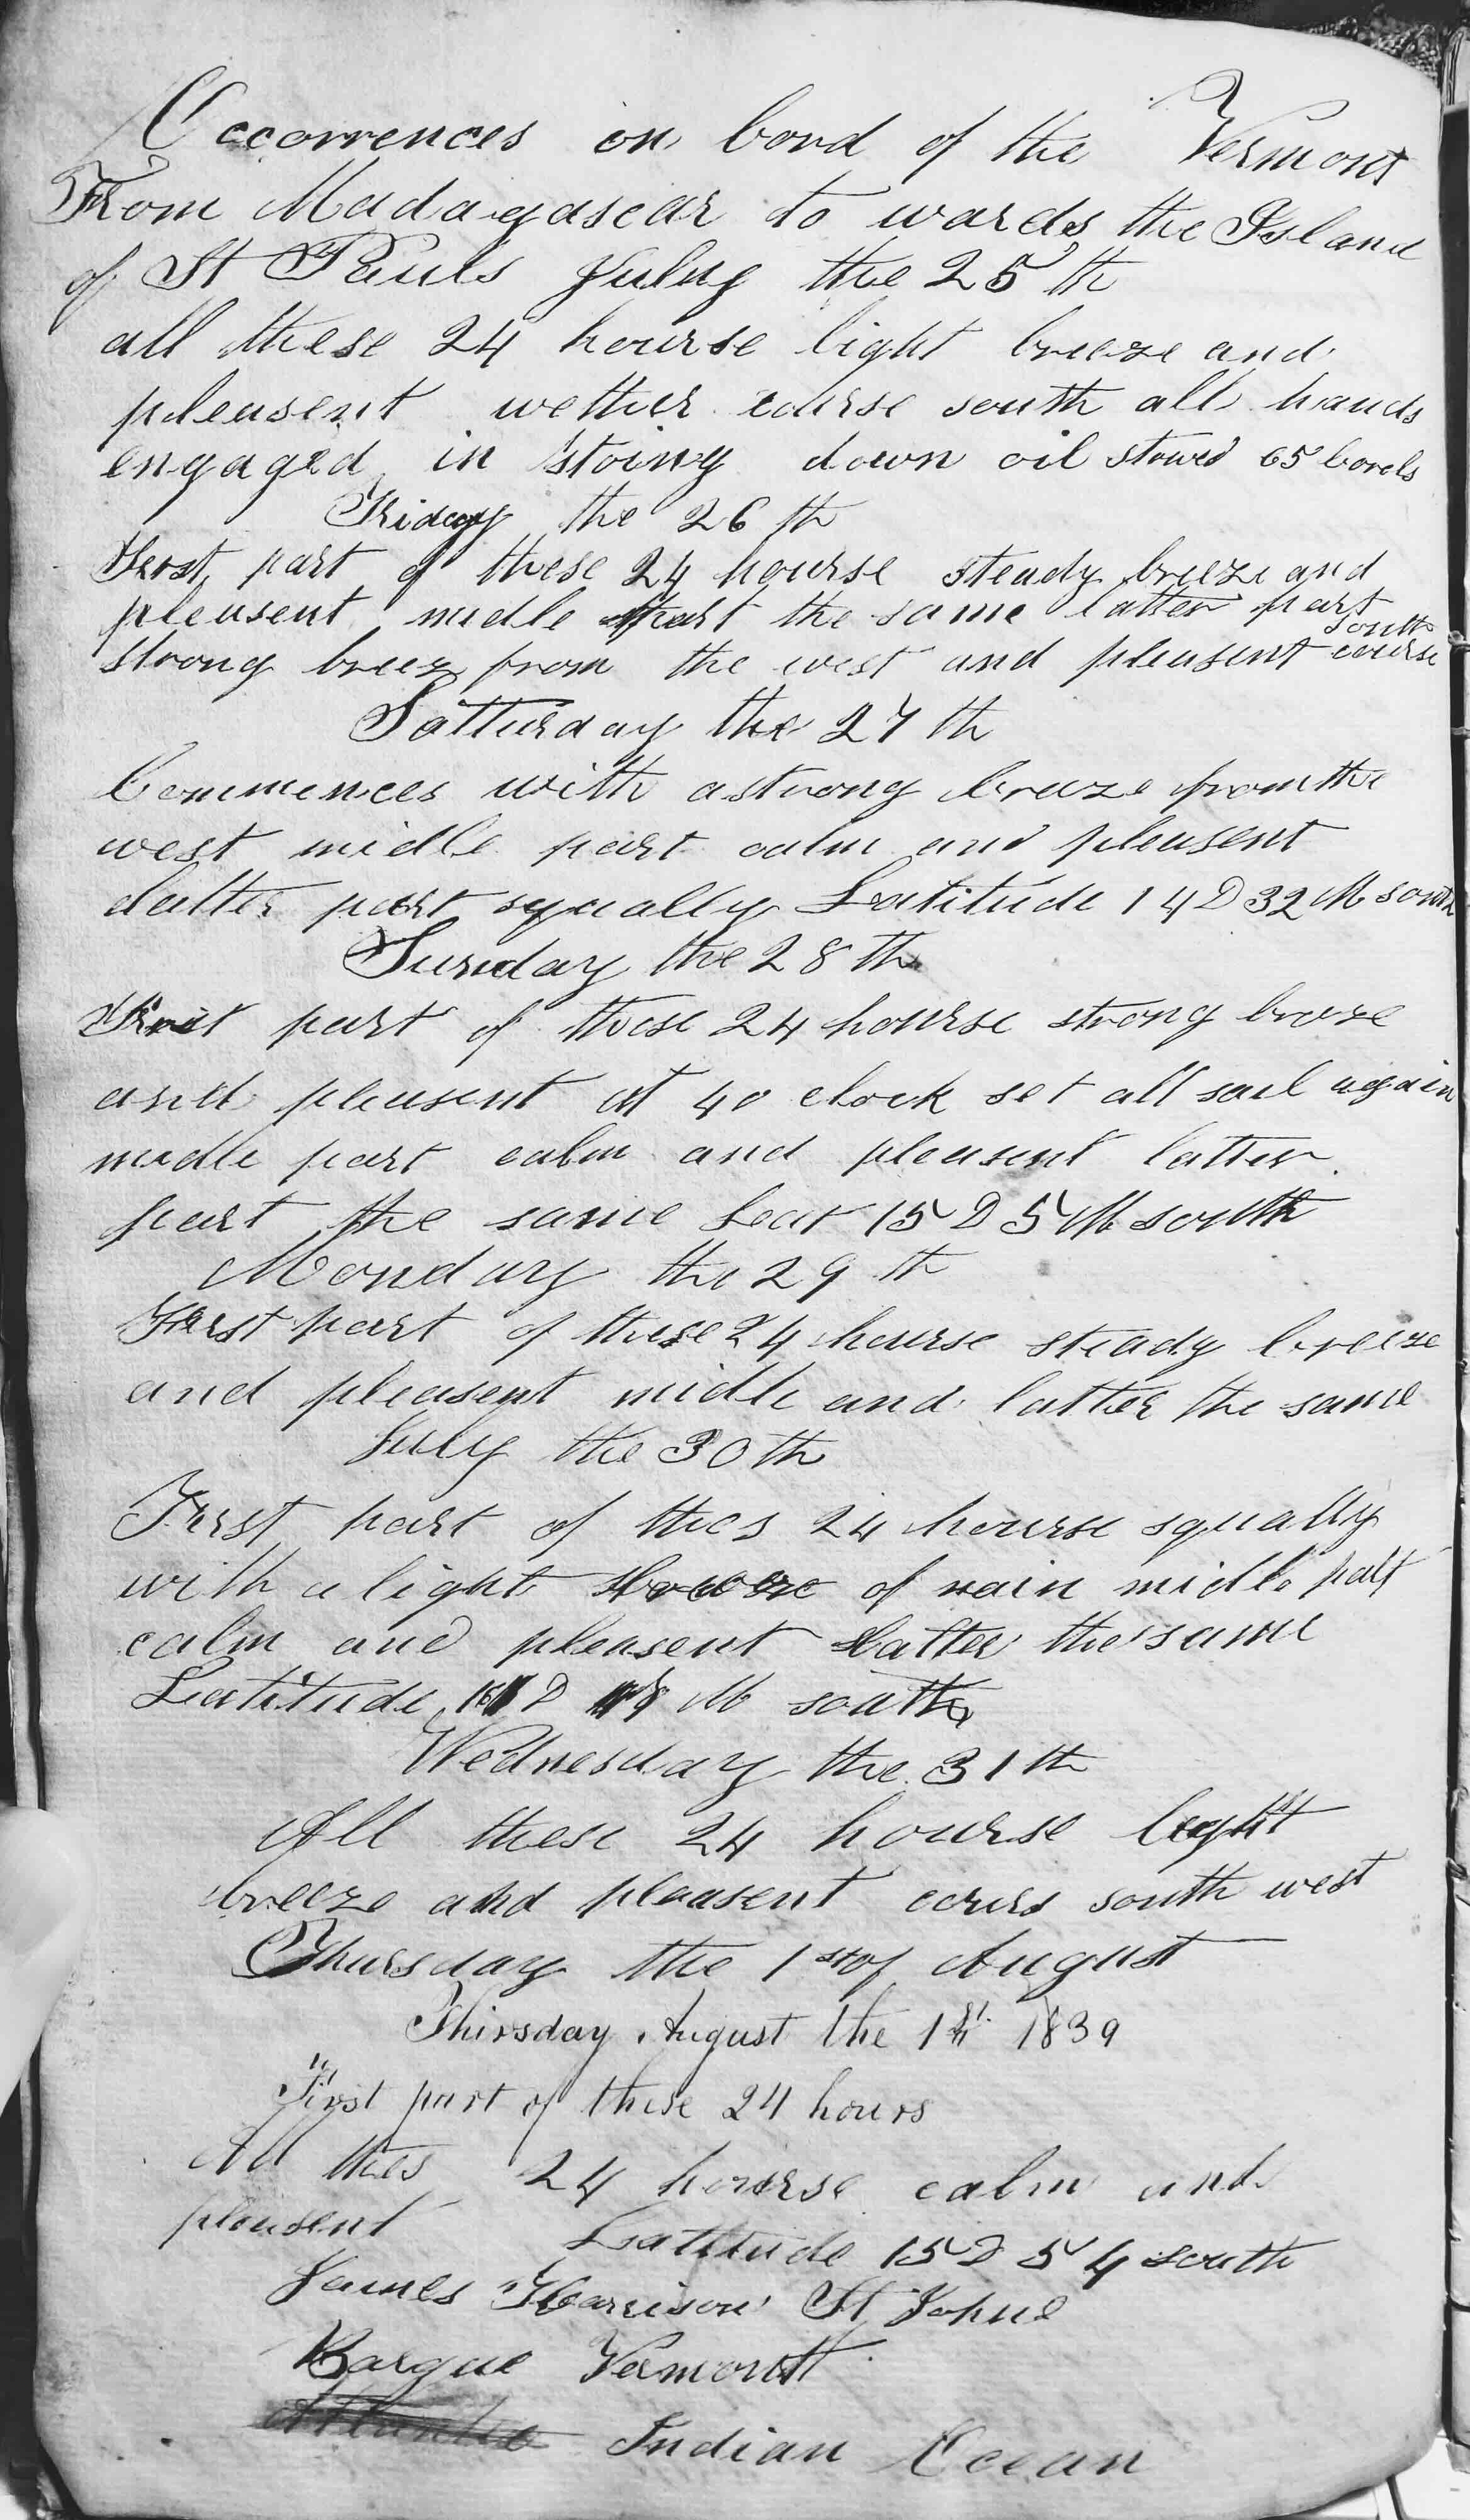 Occorrences on bord of the Vermont
From Madagascar to wards the Island
of St Pauls July the 25th
all these 24 hourse light breeze and
pleasent wether course south all hands
engaged in stoing down oil stowed 65 borels
Friday the 26 th
Ferst part of these 24 hourse steady breeze and
pleasent midle part the same latter part
strong breez from the west and pleasent course south
Satturday the 27 th
Commences with a strong breaze from the
west midle part calm and pleasent
latter part squally Latitude 14 D 32 M south
Sunday the 28 th
First part of these 24 hourse strong breze
and pleasent at 4 o clock set all sail again
midle part calm and pleasent latter
part the same Lat 15 D 5 M south
Monday the 29 th
First part of these 24 hourse steady breeze
and pleasent midle and latter the same
July the 30 th
First part of thes 24 hourse squally
with a light of rain midle part
calm and pleasent latter the same
Latitude D M south
Wednesday the 31 th
All these 24 hourse light
breeze and pleasent cours south west
Thursday the 1 st of August
Thirsday August the 1st 1839
First part of these 24 hours
All thes 24 hourse calm and
pleasent Lattitude 15 D 54 south
James Harrison St Johns
Barque Vermontt
Atlantic Indian Ocean